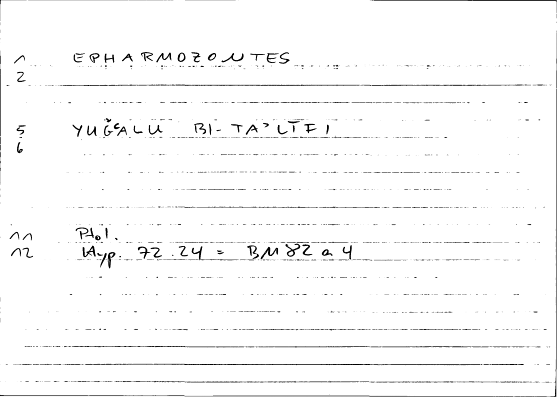 1 EPHARMOZONTES
2
5 YUǦʿALU BI-TAʾLĪFI
6
11 Ptol.
12 Hyp. 72.24 = BM 82 a 4